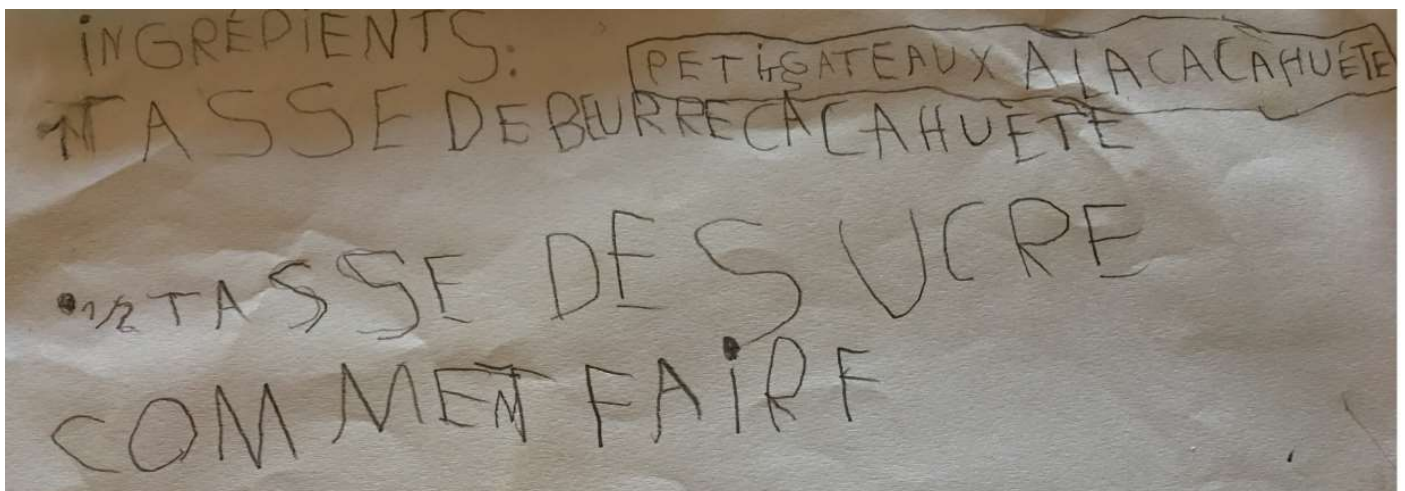 iNGRÉDIENTS:
PETiTS GATEAUX A LA CACAHUÉTE
1 TASSE DE BEURRE CACAHUÈTE
• 1/2 TASSE DE SUCRE
COMMENT FAiRE